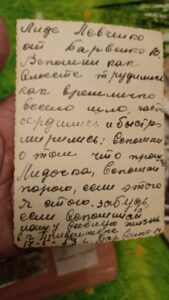 Лиде Левченко
от Барвенко В
Вспомни как
вместе трудились
как времечко
весело шло, часто
сердились и быстро
мирились: вспомни
о том что прошло
Лидочка, вспомни
порою, если этого
я стою. забудь,
если вспомнишь
нашу веселую жизнь